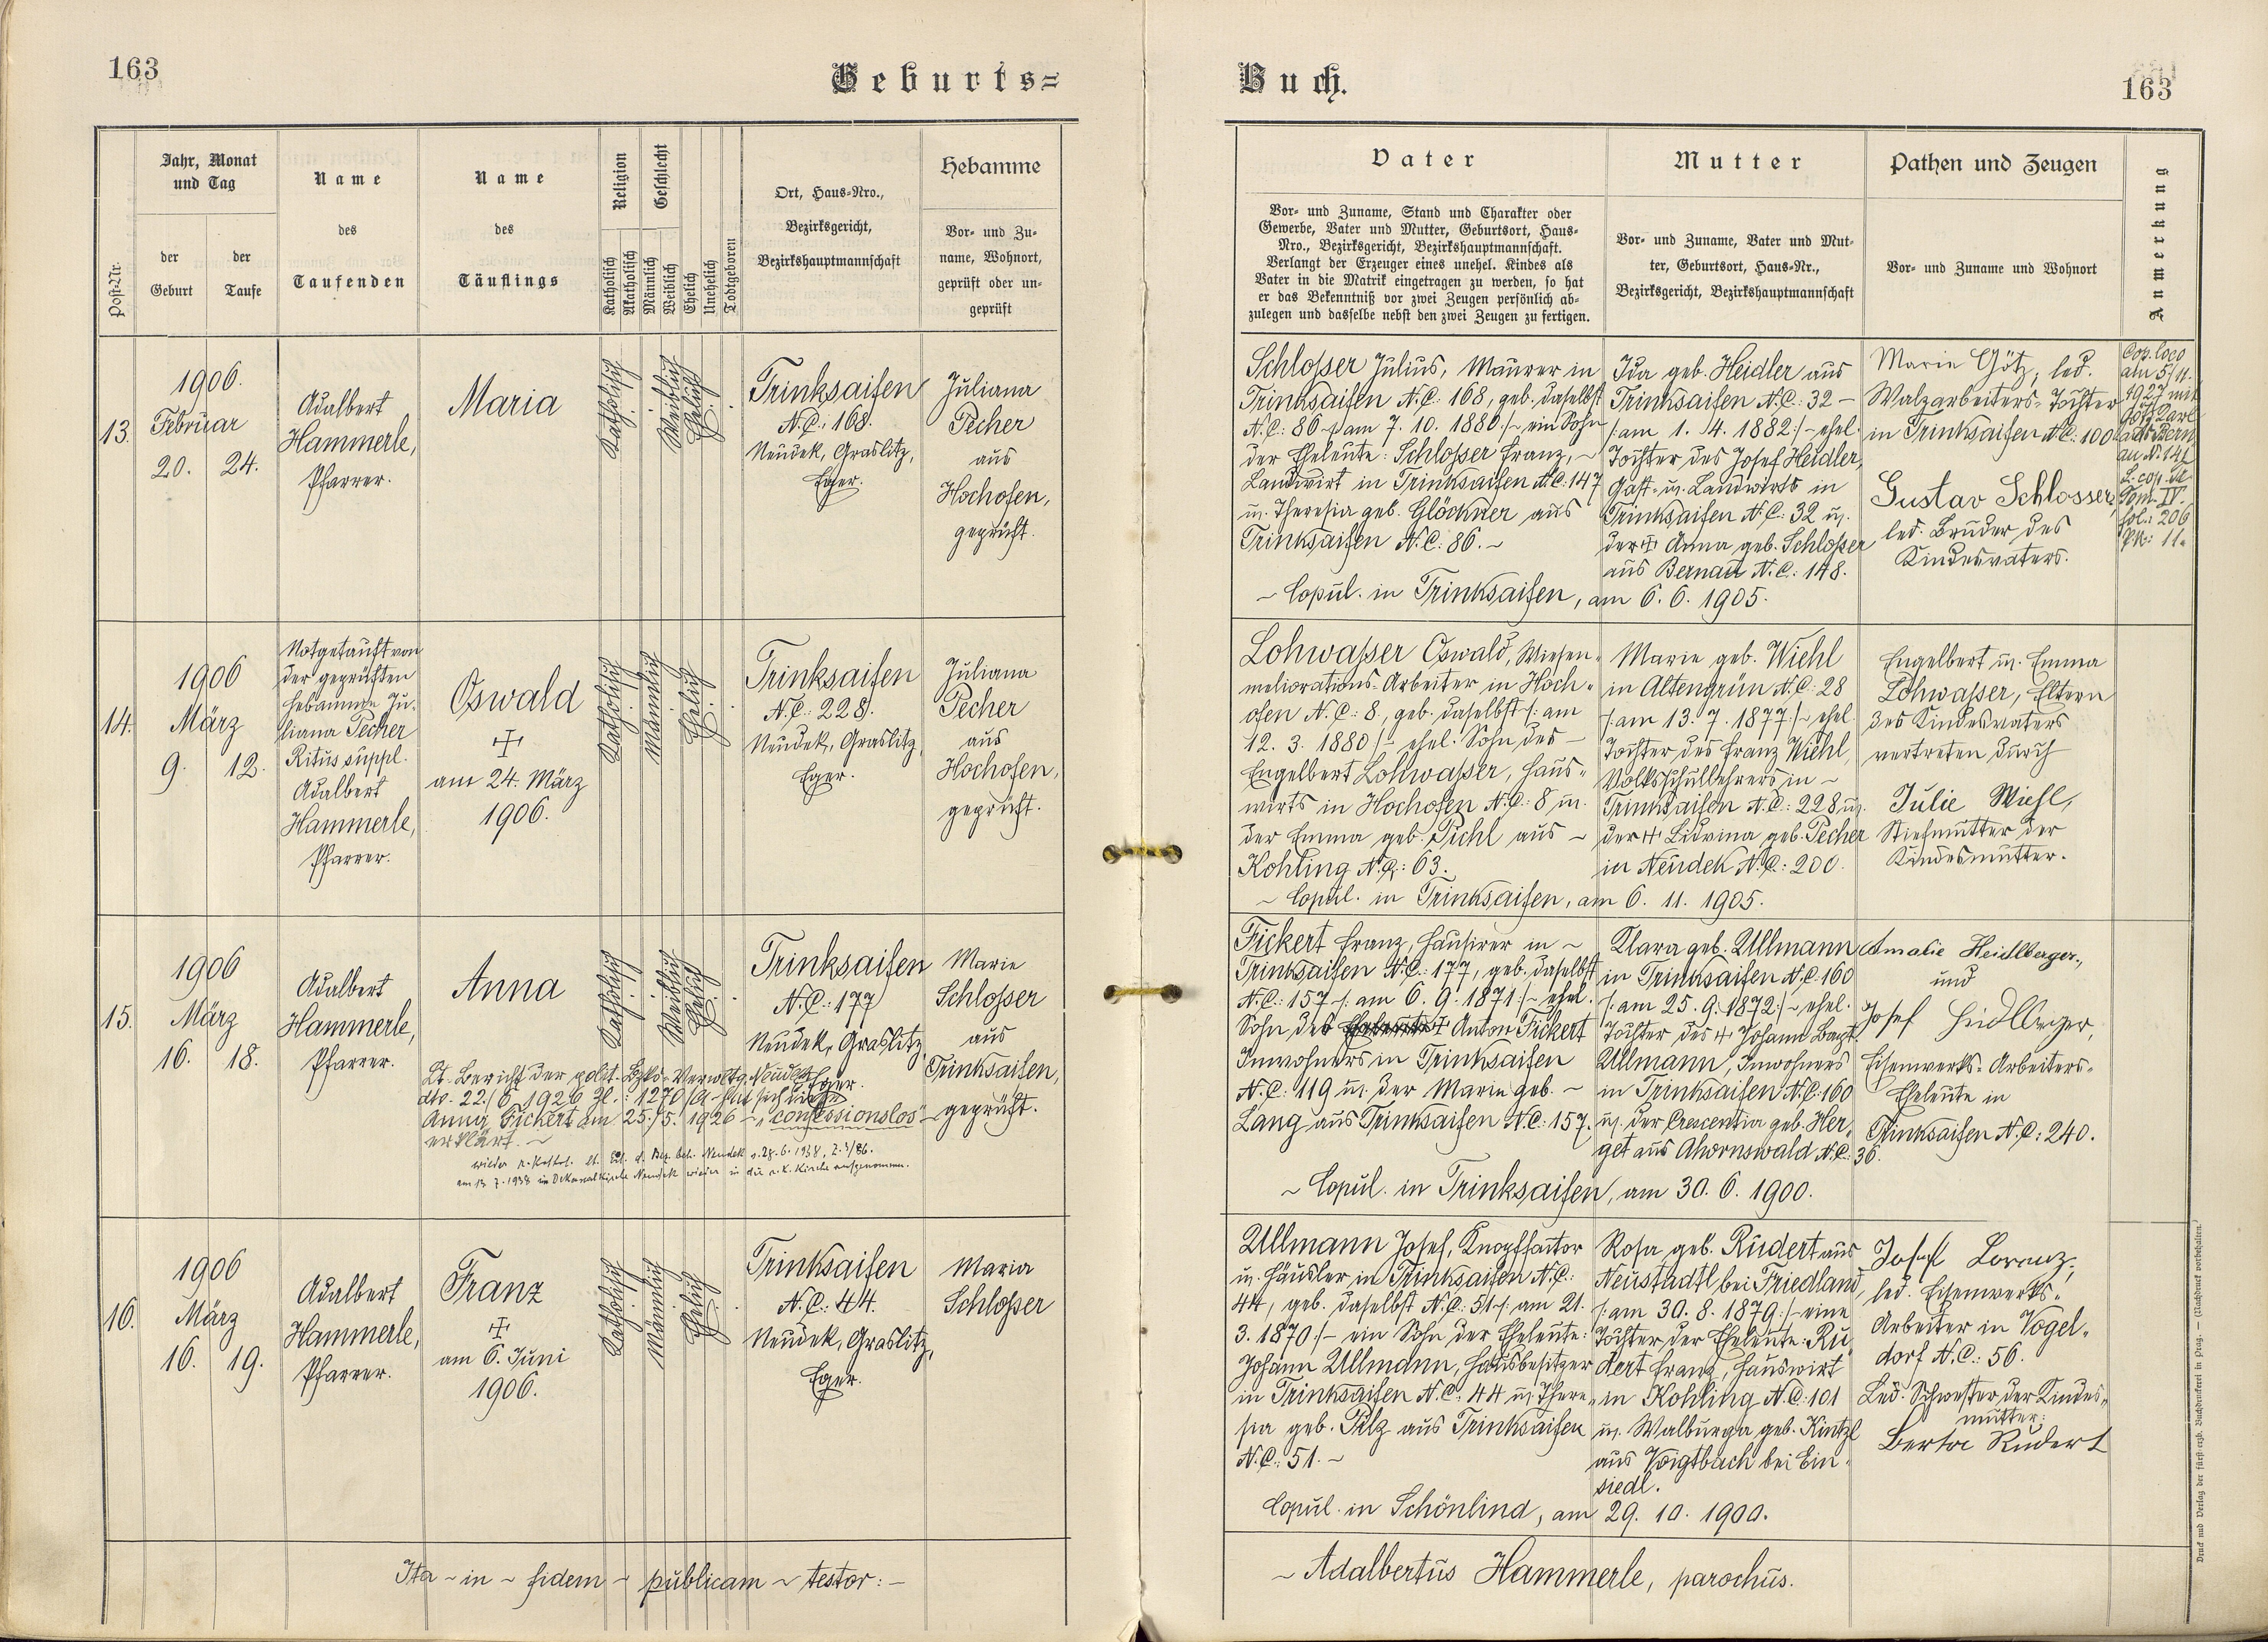 163
Geburts=
Jahr, Monat
und Tag
der
Geburt
der
Taufe
Post-Nr.
Name
des
Taufenden
Name
des
Täuflings
Religion
Katholisch
Akatholisch
Geschlecht
Männlich
Weiblich
Ehelich
Unehelich
Todtgeboren
Ort, Haus=Nro.,
Bezirksgericht,
Bezirkshauptmannschaft
Hebamme
Vor= und Zu=
name, Wohnort,
geprüft oder un=
geprüft
13.
1906.
Februar
20. 24.
Adalbert
Hammerle,
Pfarrer.
Maria
Katholisch
Weiblich
Ehelich
Trinksaifen
N.C.: 168.
Neudek, Graslitz,
Eger.
Juliana
Pecher
aus
Hochofen,
geprüft.
14.
1906
März
9. 12.
Notgetauft von
der geprüften
Hebamme Ju-
liana Pecher
Ritus suppl.
Adalbert
Hammerle,
Pfarrer.
Oswald
am 24. März
1906.
Katholisch
Männlich
Ehelich
Trinksaifen
N.C.: 228.
Neudek, Graslitz,
Eger.
Juliana
Pecher
aus
Hochofen,
geprüft.
15.
1906
März
16. 18.
Adalbert
Hammerle,
Pfarrer.
Anna
Lt. Bericht der polit. Bzks-Verwltg. Neudek
dto. 22./6. 1926 Zl.: 1270/ hat sich
Anna Fickert am 25./5. 1926 - "confessionslos" -
erklärt. ~
wieder r. kathol. lt. d. Bez. beh. Neudek v. 28.6.1938, Z. /86.
am 13.7.1938 in Neudek wieder in die r. k. Kirche aufgenommen.
Katholisch
Weiblich
Ehelich
Trinksaifen
N.C.: 177
Neudek, Graslitz,
Eger.
Marie
Schlosser
aus
Trinksaifen,
geprüft.
16.
1906
März
16. 19.
Adalbert
Hammerle,
Pfarrer.
Franz
am 6. Juni
1906.
Katholisch
Männlich
Ehelich
Trinksaifen
N.C.: 44.
Neudek, Graslitz,
Eger.
Maria
Schlosser
Ita ~ in ~ fidem ~ publicam ~ testor: -
163
Buch.
Vater
Vor= und Zuname, Stand und Charakter oder
Gewerbe, Vater und Mutter, Geburtsort, Haus=
Nro., Bezirksgericht, Bezirkshauptmannschaft.
Verlangt der Erzeuger eines unehel. Kindes als
Vater in die Matrik eingetragen zu werden, so hat
er das Bekenntniß vor zwei Zeugen persönlich ab=
zulegen und dasselbe nebst den zwei Zeugen zu fertigen.
Mutter
Vor= und Zuname, Vater und Mut=
ter, Geburtsort, Haus=Nr.,
Bezirksgericht, Bezirkshauptmannschaft
Pathen und Zeugen
Vor= und Zuname und Wohnort
Anmerkung
Schlosser Julius, Maurer in
Trinksaifen N.C. 168, geb. daselbst
N.C.: 86 /: am 7. 10. 1880 :/ ~ ein Sohn
der Eheleute: Schlosser Franz, ~
Landwirt in Trinksaifen N.C.: 147
u. Theresia geb. Glöckner aus
Trinksaifen N.C.: 86. ~
Ida geb. Heidler aus
Trinksaifen N.C.: 32 -
/: am 1. 4. 1882 :/ - ehel.
Tochter des Josef Heidler,
Gast- u. Landwirts in
Trinksaifen N.C.: 32 u.
der Anna geb. Schlosser
aus Bernau N.C.: 148.
~ Copul. in Trinksaifen, am 6. 6. 1905.
Marie Götz, led.
Walzarbeiters-Tochter
in Trinksaifen N.C.: 100
Gustav Schlosser,
led. Bruder des
Kindesvaters.
Cop. loco
am 5/11.
1927 mit
Götz Karl
aus Bern-
au N. 141
L. cop. Tr.
Tom. IV.
fol.: 206
Pk: 11.
Lohwasser Oswald, Wiesen-
meliorations-Arbeiter in Hoch-
ofen N.C.: 8, geb. daselbst /: am
12. 3. 1880 :/ - ehel. Sohn des -
Engelbert Lohwasser, Haus-
wirts in Hochofen N.C.: 8 u.
der Emma geb. Pichl aus ~
Kohling N.C.: 63.
Marie geb. Wiehl
in Altengrün N.C.: 28
/: am 13. 7. 1877 :/ - ehel.
Tochter des Franz Wiehl,
Volksschullehrers in ~
Trinksaifen N.C.: 228 u.
der Lidwina geb. Pecher
in Neudek N.C.: 200.
~ Copul. in Trinksaifen, am 6. 11. 1905.
Engelbert u. Emma
Lohwasser, Eltern
des Kindesvaters
vertreten durch
Julie Wiehl,
Stiefmutter der
Kindesmutter.
Fickert Franz, Hausirer in ~
Trinksaifen N.C.: 177, geb. daselbst
N.C.: 157 /: am 6. 9. 1871 :/ - ehel.
Sohn des Anton Fickert
Inwohners in Trinksaifen
N.C.: 119 u. der Marie geb. ~
Lang aus Trinksaifen N.C.: 157.
Klara geb. Ullmann
in Trinksaifen N.C. 160
/: am 25. 9. 1872 :/ - ehel.
Tochter des Johann Bapt.
Ullmann, Inwohners
in Trinksaifen N.C. 160
u. der Crescentia geb. Her-
get aus Ahornswald N.C.: 36.
~ Copul. in Trinksaifen, am 30. 6. 1900.
Amalie Heidlberger,
und
Josef Heidlberger,
Eisenwerks-Arbeiters-
Eheleute in
Trinksaifen N.C.: 240.
Ullmann Josef, Knopffaktor
u. Häusler in Trinksaifen N.C.:
44, geb. daselbst N.C.: 51 /: am 21.
3. 1870 :/ - ein Sohn der Eheleute:
Johann Ullmann, Hausbesitzer
in Trinksaifen N.C.: 44 u. There-
sia geb. Pilz aus Trinksaifen
N.C.: 51. ~
Rosa geb. Rudert aus
Neustadtl bei Friedland,
/: am 30. 8. 1879 :/ - eine
Tochter der Eheleute: Ru-
dert Franz, Hauswirt
in Kohling N.C.: 101
u. Walburga geb. Kintzl
aus Voigtbach bei Ein-
siedl.
Copul. in Schönlind, am 29. 10. 1900.
Josef Lorenz,
led. Eisenwerks-
Arbeiter in Vogel-
dorf N.C.: 56.
Led. Schwester der Kindes-
mutter:
Berta Rudert
~ Adalbertus Hammerle, parochus.
Druck und Verlag der fürst-erzb. Buchdruckerei in Prag. — (Nachdruck vorbehalten.)